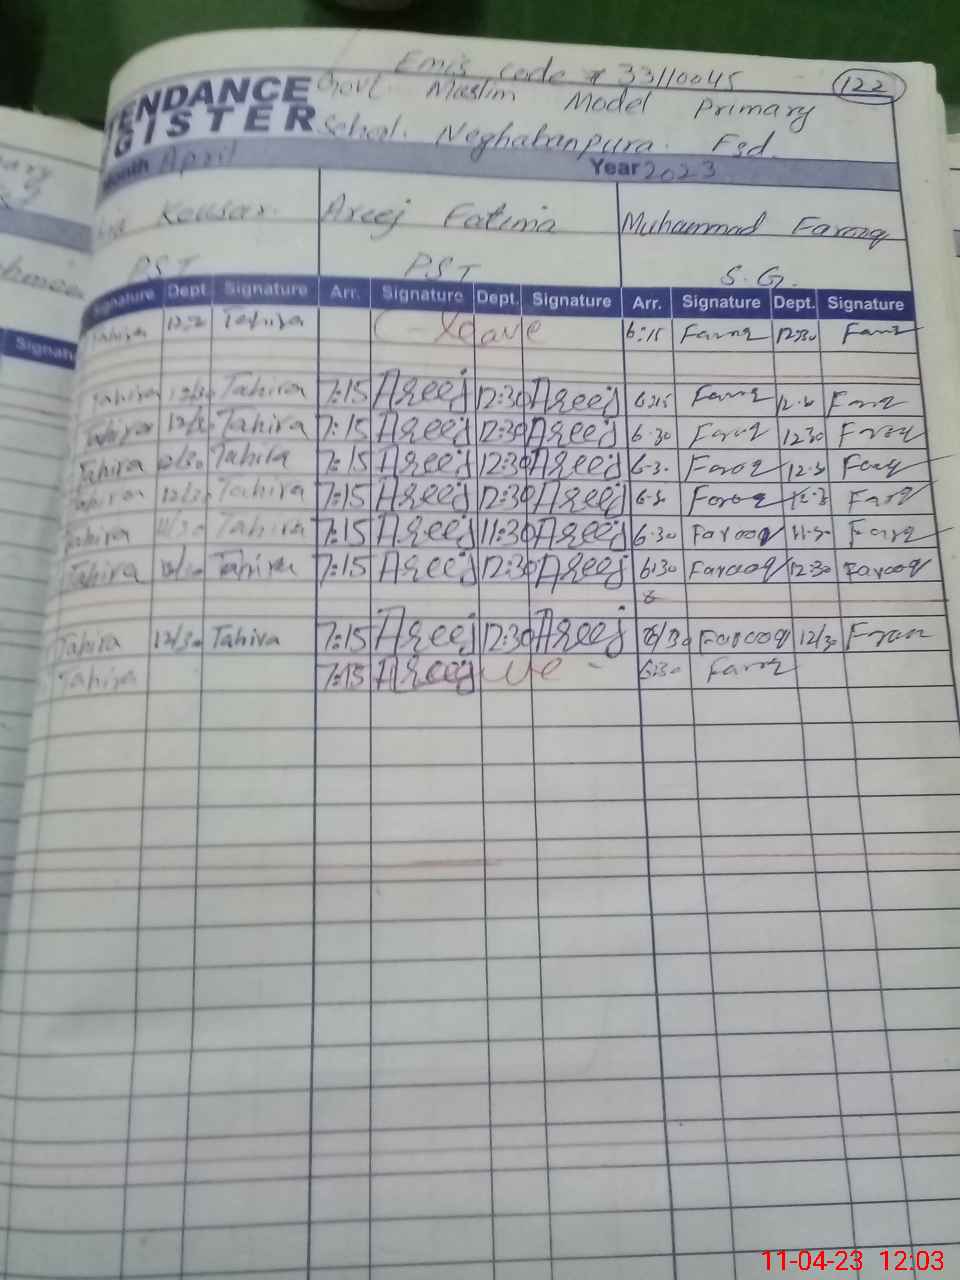 Emis code # 33110045
122
TENDANCE Govt Muslim Model Primary
GISTER School. Neghabanpura. Fsd.
Month April Year 2023
Kousar. Areej Fatima Muhammad Farooq
PST PST S.G.
Signature Dept. Signature Arr. Signature Dept. Signature Arr. Signature Dept. Signature
Tahira Tahira Leave 6:15 Farooq 12:30 Farooq
Tahira 12/30 Tahira 7:15 Areej 12:30 Areej 6:15 Farooq Farooq
Tahira Tahira 7:15 Areej 12:30 Areej 6.30 Farooq 1230 Farooq
Tahira 12/30 Tahira 7:15 Areej 12:30 Areej 6.3. Faroq Farooq
Tahira Tahira 7:15 Areej 12:30 Areej Faroq Farq
Tahira 11/30 Tahira 7:15 Areej 11:30 Areej 6.30 Farooq 11.30 Farq
Tahira Tahira 7:15 Areej 12:30 Areej 6:30 Farooq 12:30 Farooq
8
Tahira 12/30 Tahira 7:15 Areej 12:30 Areej 6/30 Farooq 12/30 Farooq
Tahira 7:15 Areej 6:30 Farq
Signature
11-04-23 12:03